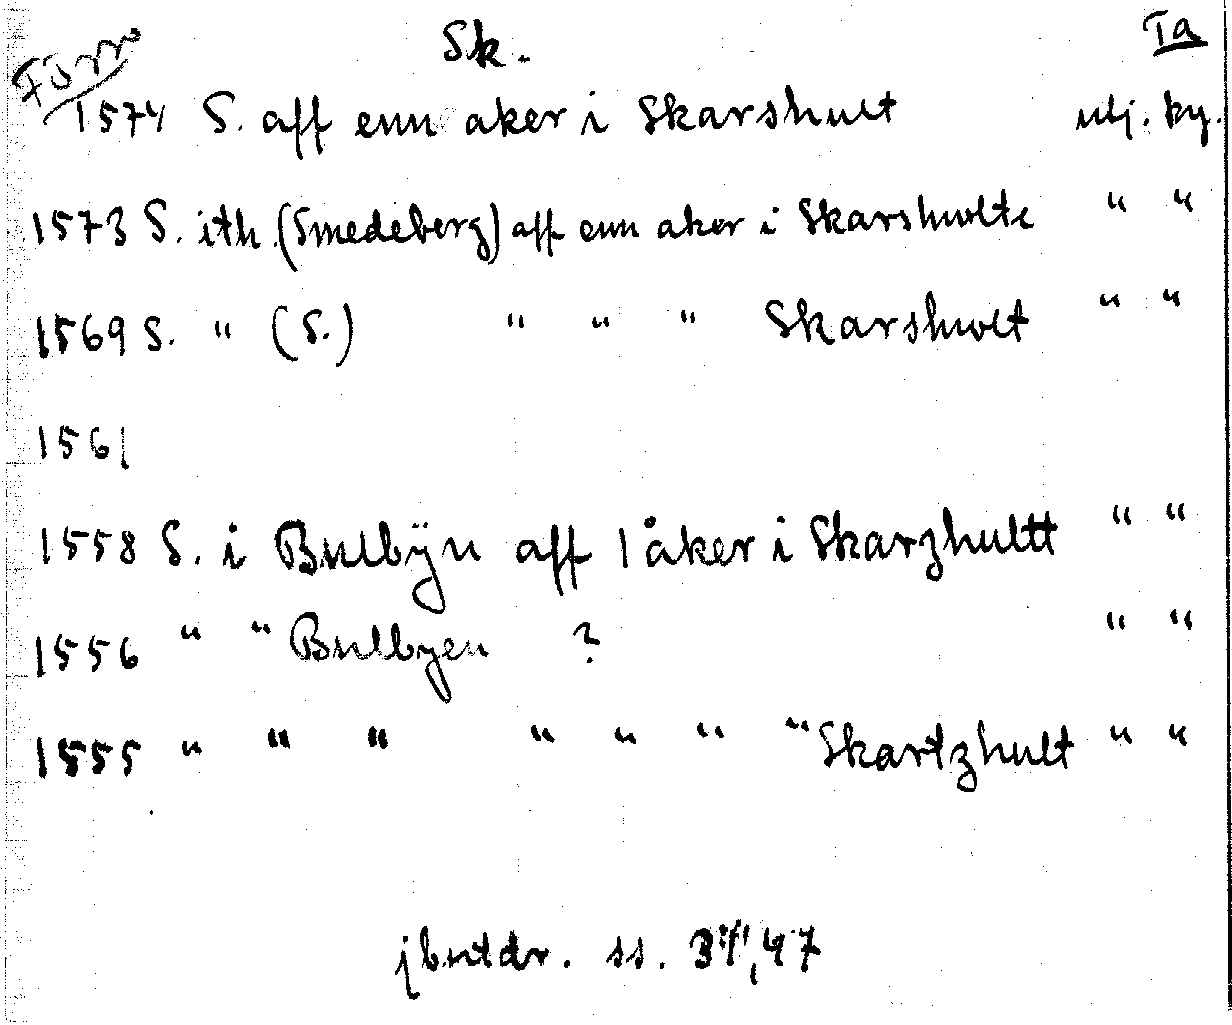 Forn Sk. Ta
1574 S. aff enn aker i Skarshult utj. by.
1573 S. ith (Smedeberg) aff enn aker i Skarshwlte " "
1569 S. " (S.) " " " Skarshwlt " "
1561
1558 S. i Bulbÿn aff 1 åker i Skarzhultt " "
1556 " " Bulbyen ? " "
1555 " " " " " " " Skartzhult " "
jbutdr. ss. 47